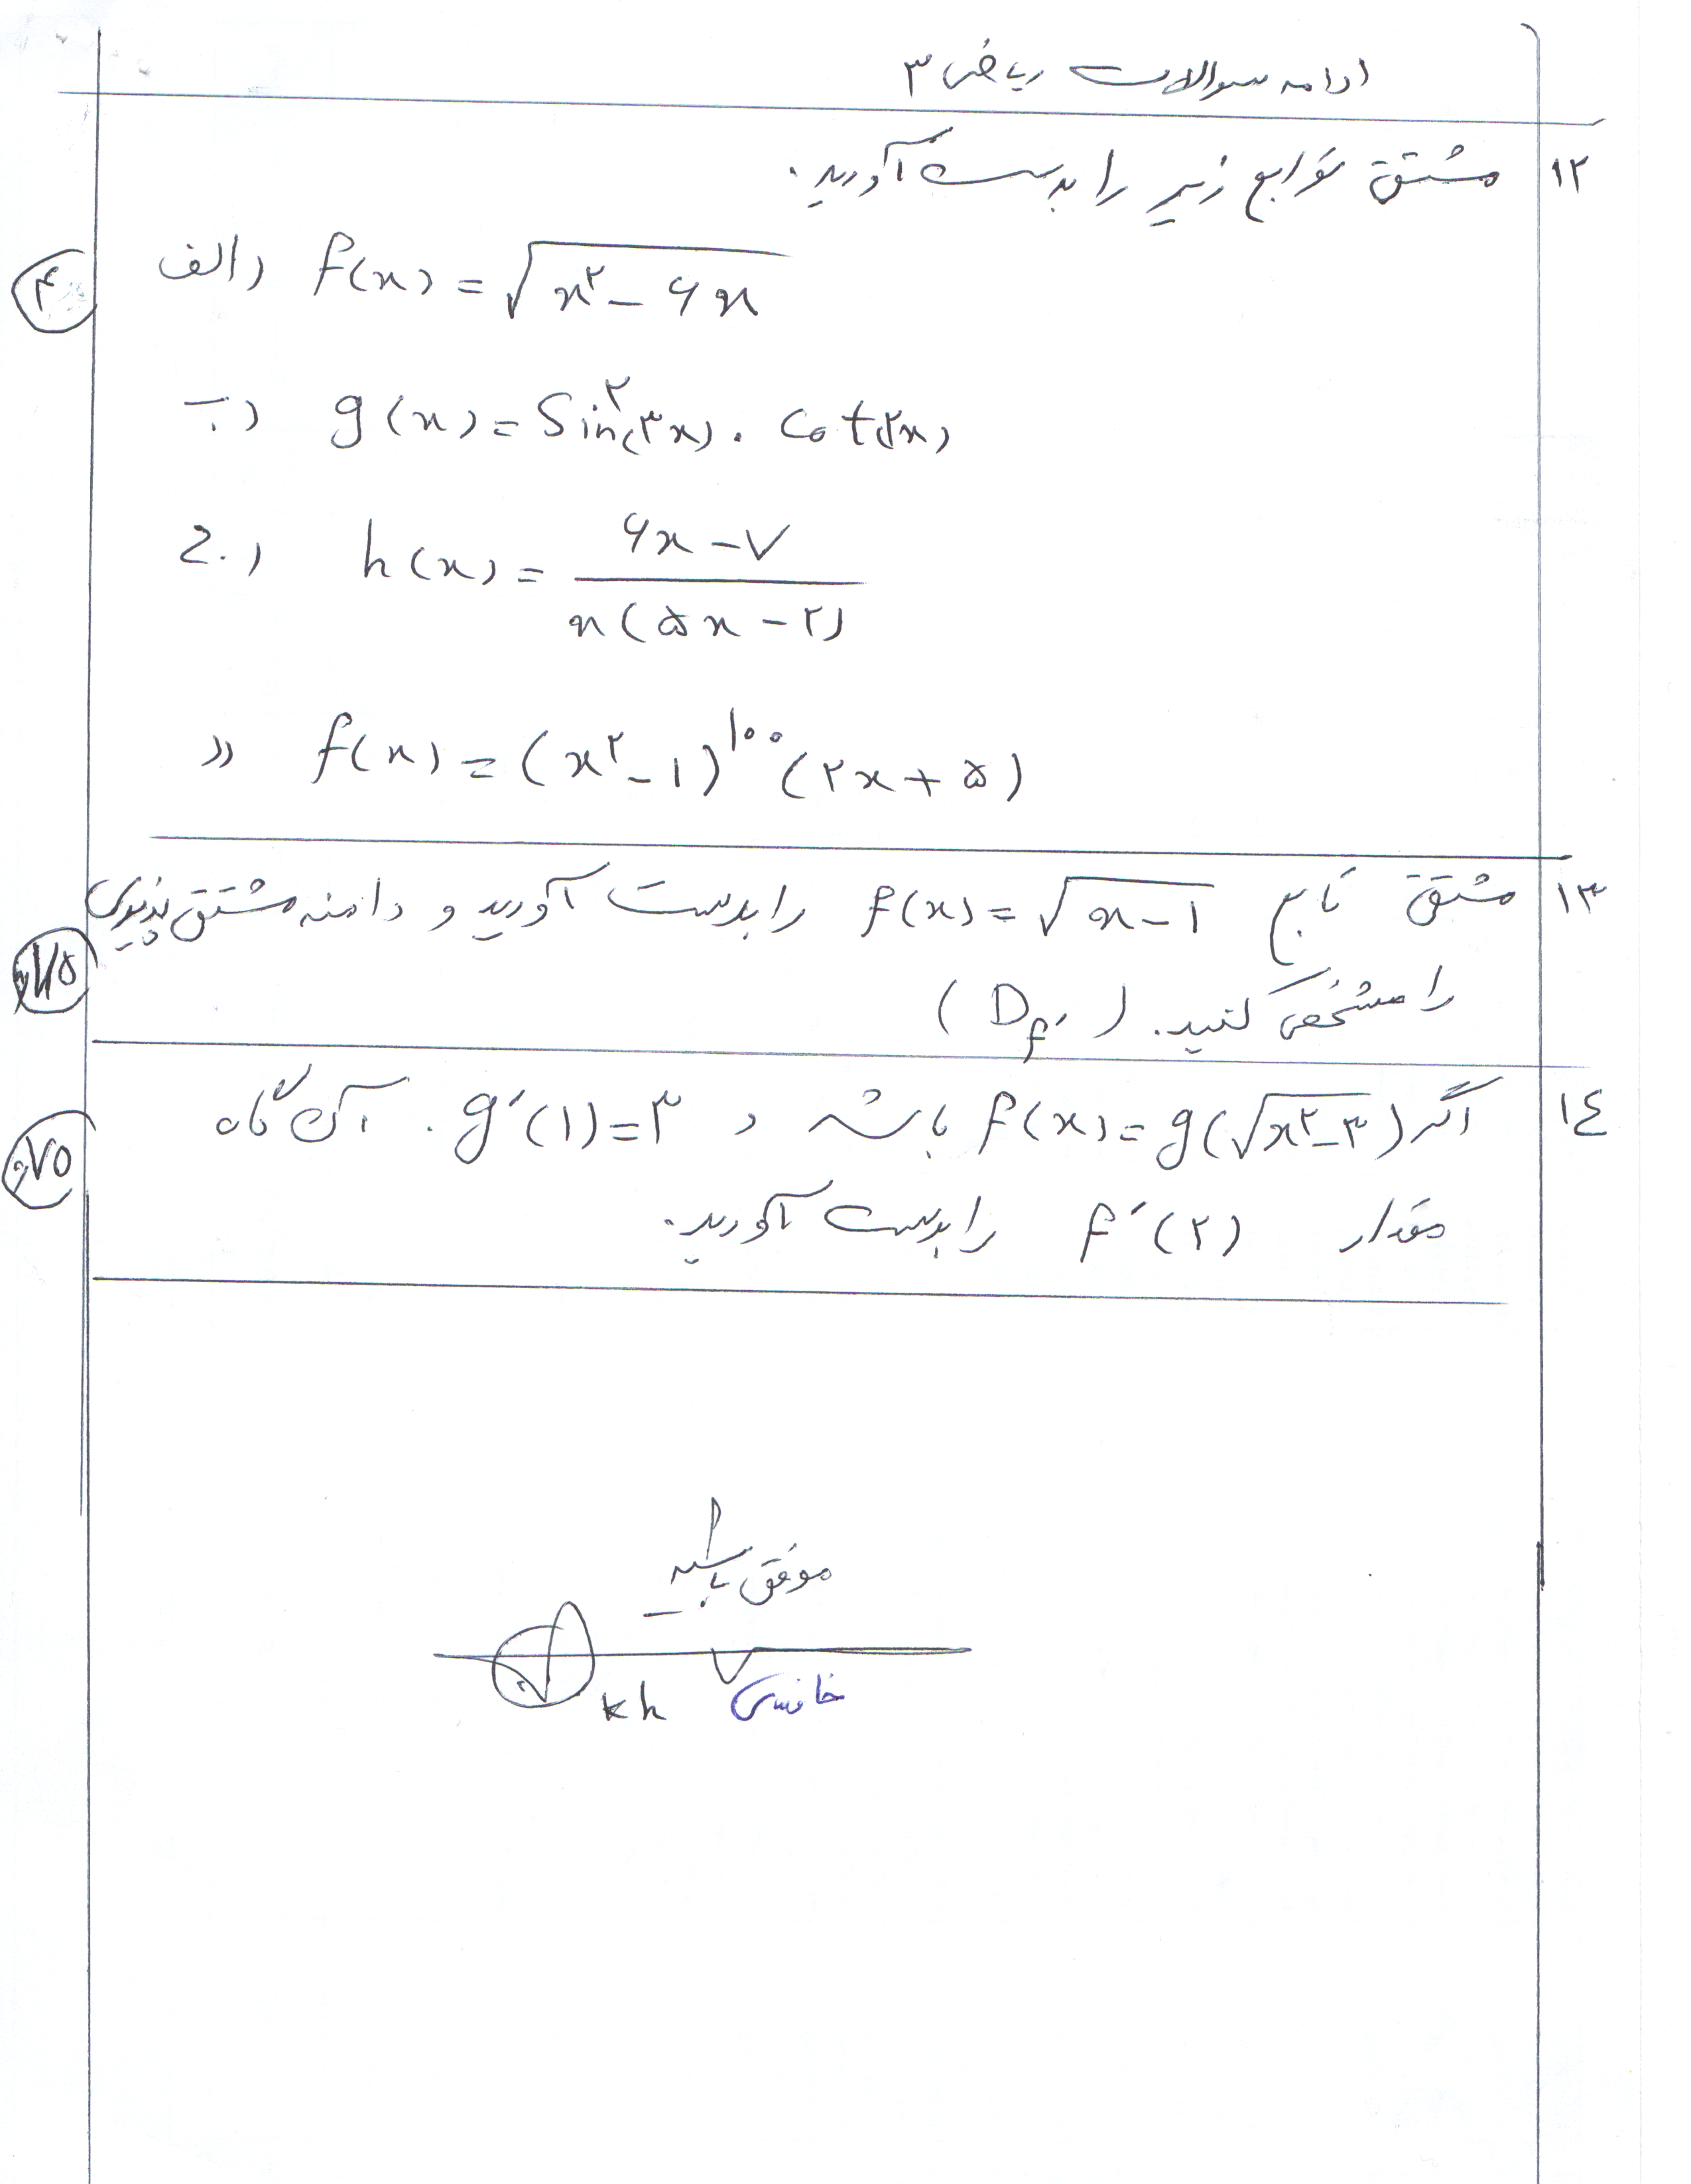 ادامه سوالات ریاضی ۳
۱۲ مشتق توابع زیر را بدست آورید.
۴
الف) f(x) = √(x² - ۶x)
ب) g(x) = Sin²(۳x) . Cot(۲x)
ج) h(x) = (۶x - ۷) / x(۵x - ۲)
د) f(x) = (x² - ۱)¹⁰⁰ (۲x + ۵)
۱۳ مشتق تابع f(x) = √(x - ۱) را بدست آورید و دامنه مشتق پذیری
را مشخص کنید. (D_f′)
۱۴ اگر f(x) = g(√(x² - ۳)) باشد و g′(۱) = ۳ . آن گاه
۰/۷۵
مقدار f′(۲) را بدست آورید.
موفق باشید
kh